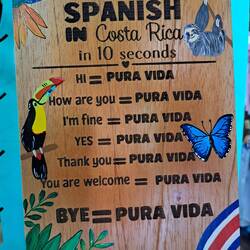 SPANISH
IN Costa Rica
in 10 seconds
HI = PURA VIDA
How are you = PURA VIDA
I'm fine = PURA VIDA
YES = PURA VIDA
Thank you = PURA VIDA
You are welcome = PURA VIDA
BYE = PURA VIDA